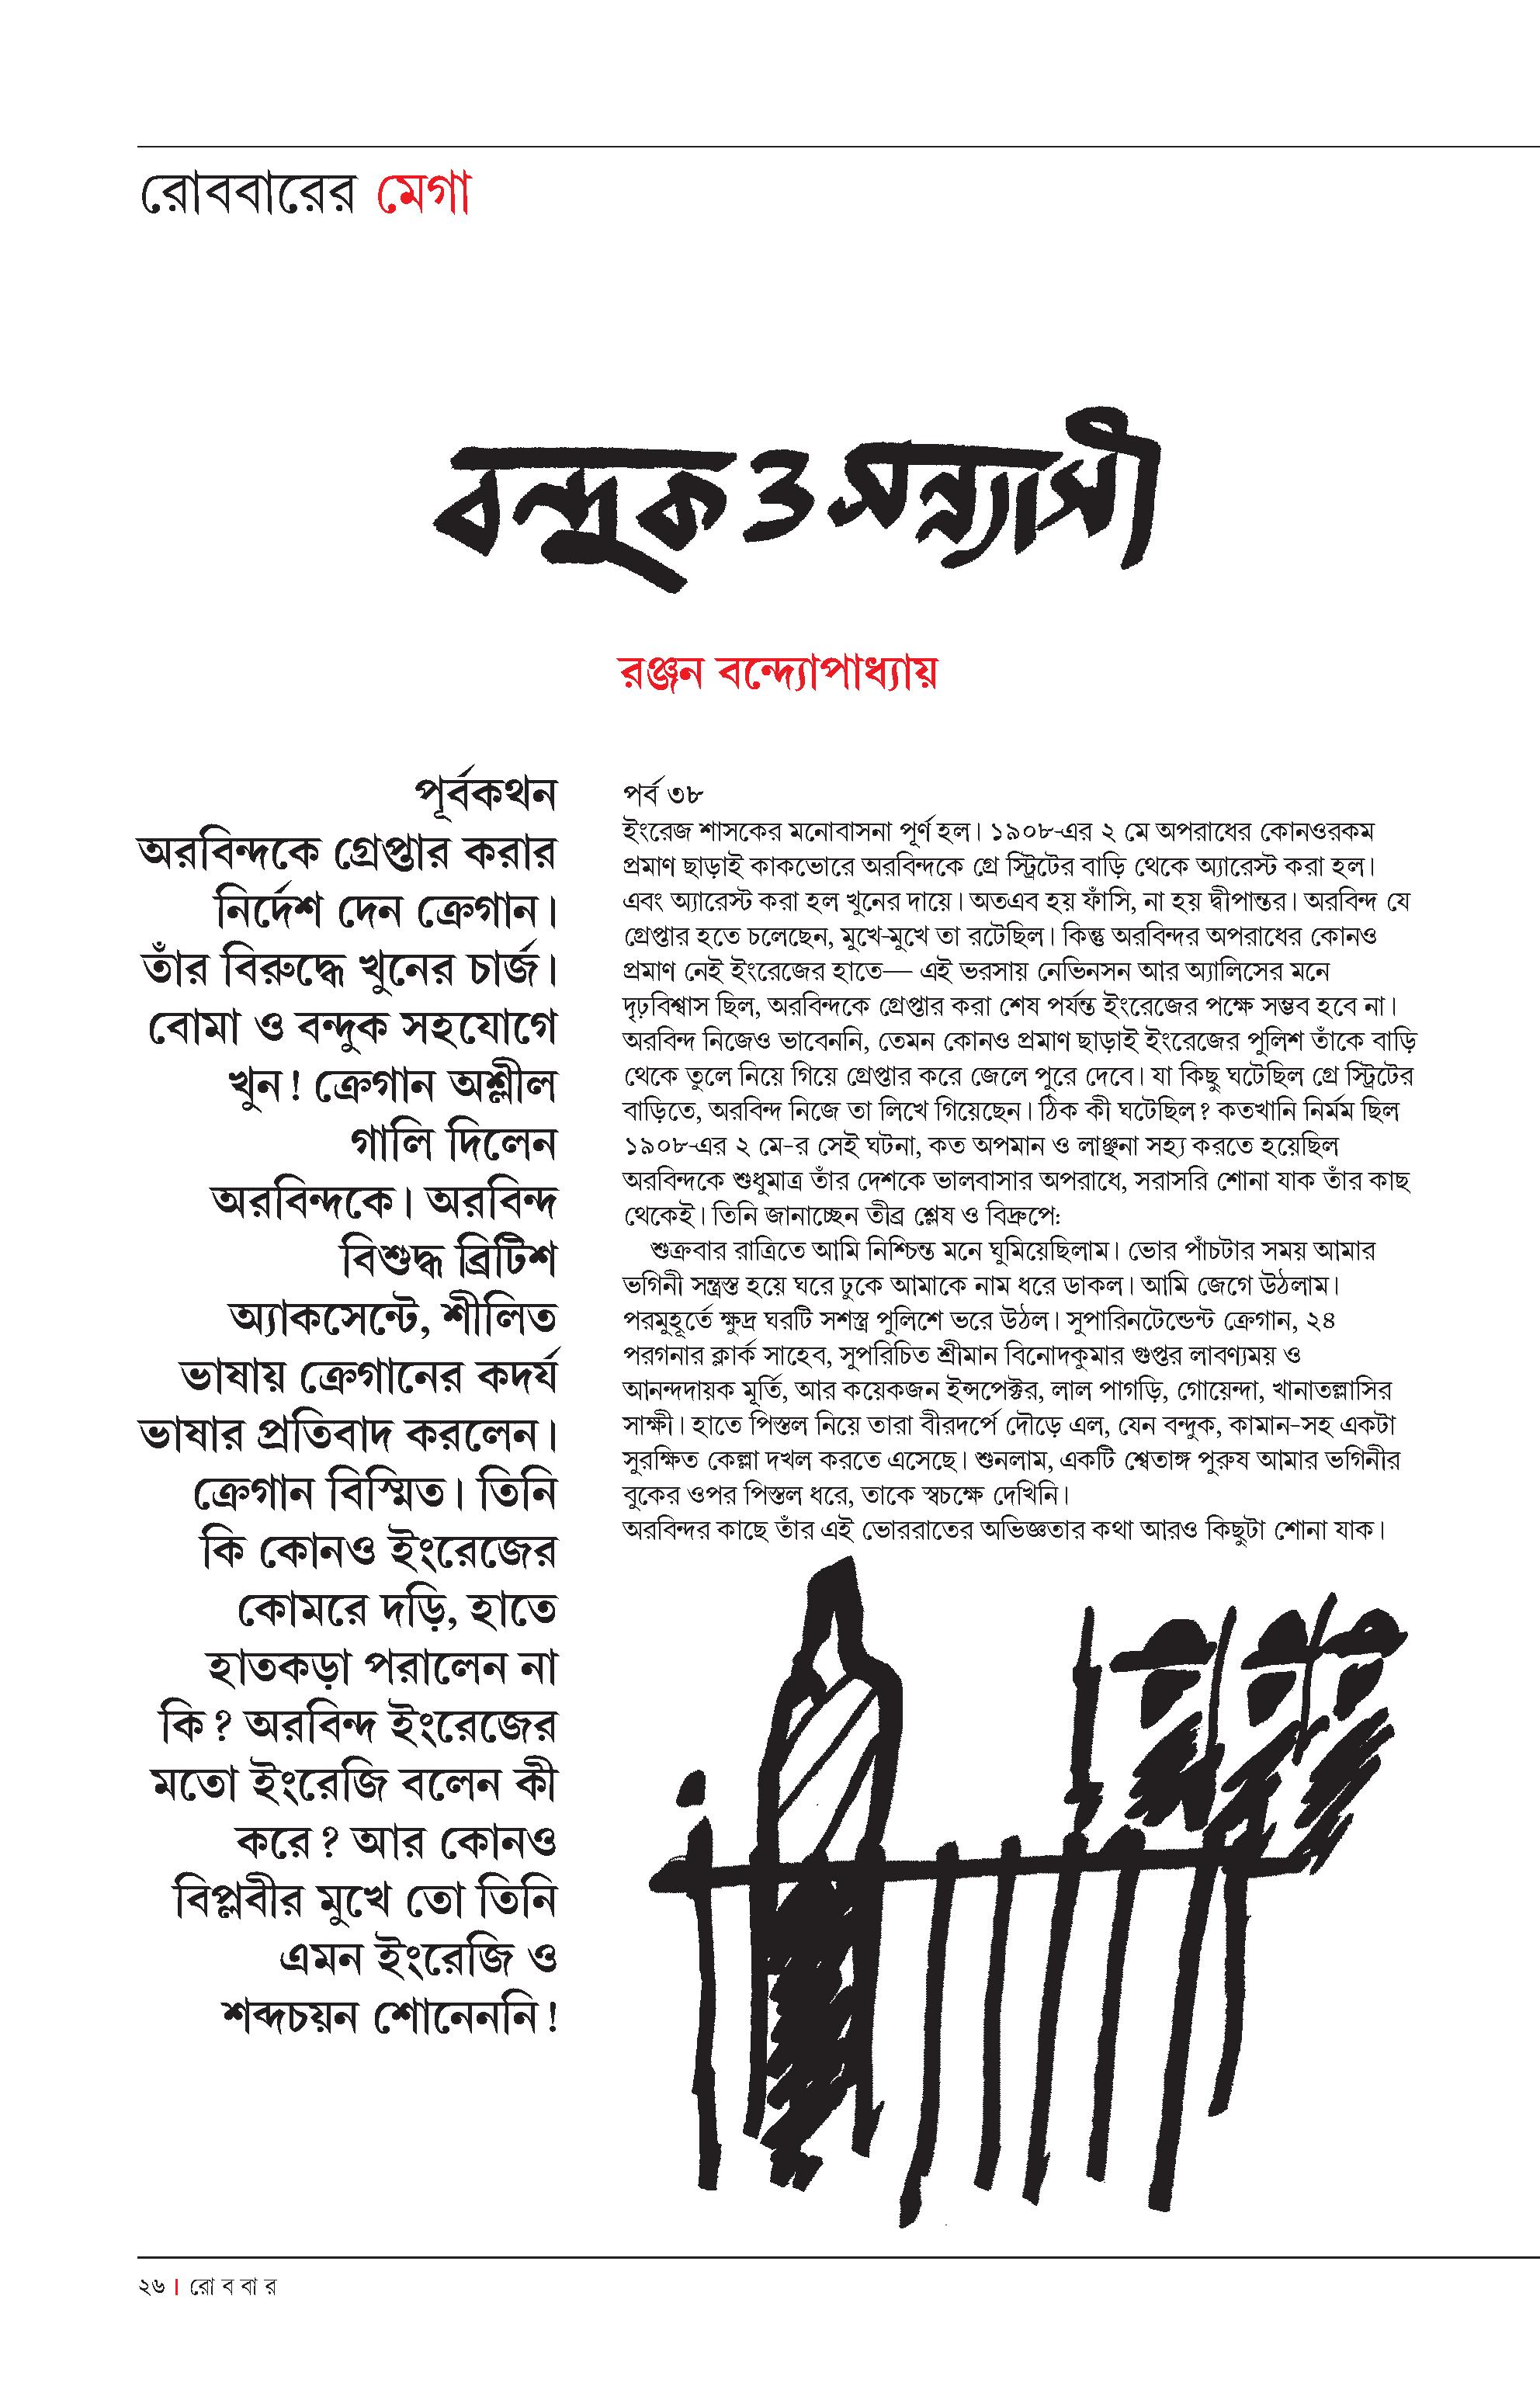 রোববারের মেগা
বন্দুক ও সন্ন্যাসী
রঞ্জন বন্দ্যোপাধ্যায়
পূর্বকথন
অরবিন্দকে গ্রেপ্তার করার
নির্দেশ দেন ক্রেগান।
তাঁর বিরুদ্ধে খুনের চার্জ।
বোমা ও বন্দুক সহযোগে
খুন! ক্রেগান অশ্লীল
গালি দিলেন
অরবিন্দকে। অরবিন্দ
বিশুদ্ধ ব্রিটিশ
অ্যাকসেন্টে, শীলিত
ভাষায় ক্রেগানের কদর্য
ভাষার প্রতিবাদ করলেন।
ক্রেগান বিস্মিত। তিনি
কি কোনও ইংরেজের
কোমরে দড়ি, হাতে
হাতকড়া পরালেন না
কি? অরবিন্দ ইংরেজের
মতো ইংরেজি বলেন কী
করে? আর কোনও
বিপ্লবীর মুখে তো তিনি
এমন ইংরেজি ও
শব্দচয়ন শোনেননি!
পর্ব ৩৮
ইংরেজ শাসকের মনোবাসনা পূর্ণ হল। ১৯০৮-এর ২ মে অপরাধের কোনওরকম
প্রমাণ ছাড়াই কাকভোরে অরবিন্দকে গ্রে স্ট্রিটের বাড়ি থেকে অ্যারেস্ট করা হল।
এবং অ্যারেস্ট করা হল খুনের দায়ে। অতএব হয় ফাঁসি, না হয় দ্বীপান্তর। অরবিন্দ যে
গ্রেপ্তার হতে চলেছেন, মুখে-মুখে তা রটেছিল। কিন্তু অরবিন্দর অপরাধের কোনও
প্রমাণ নেই ইংরেজের হাতে— এই ভরসায় নেভিনসন আর অ্যালিসের মনে
দৃঢ়বিশ্বাস ছিল, অরবিন্দকে গ্রেপ্তার করা শেষ পর্যন্ত ইংরেজের পক্ষে সম্ভব হবে না।
অরবিন্দ নিজেও ভাবেননি, তেমন কোনও প্রমাণ ছাড়াই ইংরেজের পুলিশ তাঁকে বাড়ি
থেকে তুলে নিয়ে গিয়ে গ্রেপ্তার করে জেলে পুরে দেবে। যা কিছু ঘটেছিল গ্রে স্ট্রিটের
বাড়িতে, অরবিন্দ নিজে তা লিখে গিয়েছেন। ঠিক কী ঘটেছিল? কতখানি নির্মম ছিল
১৯০৮-এর ২ মে-র সেই ঘটনা, কত অপমান ও লাঞ্ছনা সহ্য করতে হয়েছিল
অরবিন্দকে শুধুমাত্র তাঁর দেশকে ভালবাসার অপরাধে, সরাসরি শোনা যাক তাঁর কাছ
থেকেই। তিনি জানাচ্ছেন তীব্র শ্লেষ ও বিদ্রুপে:
শুক্রবার রাত্রিতে আমি নিশ্চিন্ত মনে ঘুমিয়েছিলাম। ভোর পাঁচটার সময় আমার
ভগিনী সন্ত্রস্ত হয়ে ঘরে ঢুকে আমাকে নাম ধরে ডাকল। আমি জেগে উঠলাম।
পরমুহূর্তে ক্ষুদ্র ঘরটি সশস্ত্র পুলিশে ভরে উঠল। সুপারিনটেন্ডেন্ট ক্রেগান, ২৪
পরগনার ক্লার্ক সাহেব, সুপরিচিত শ্রীমান বিনোদকুমার গুপ্তর লাবণ্যময় ও
আনন্দদায়ক মূর্তি, আর কয়েকজন ইন্সপেক্টর, লাল পাগড়ি, গোয়েন্দা, খানাতল্লাসির
সাক্ষী। হাতে পিস্তল নিয়ে তারা বীরদর্পে দৌড়ে এল, যেন বন্দুক, কামান-সহ একটা
সুরক্ষিত কেল্লা দখল করতে এসেছে। শুনলাম, একটি শ্বেতাঙ্গ পুরুষ আমার ভগিনীর
বুকের ওপর পিস্তল ধরে, তাকে স্বচক্ষে দেখিনি।
অরবিন্দর কাছে তাঁর এই ভোররাতের অভিজ্ঞতার কথা আরও কিছুটা শোনা যাক।
২৬ | রো ব বা র